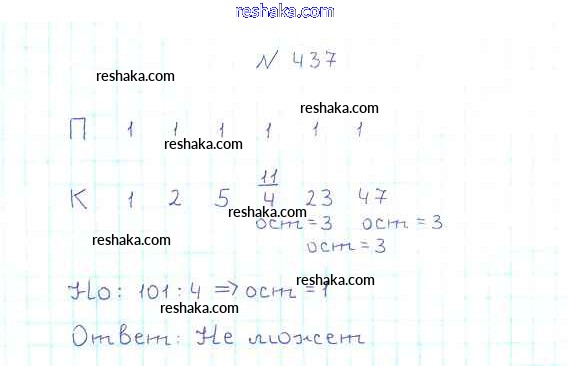 reshaka.com
N 437
reshaka.com
reshaka.com
П 1 1 1 1 1 1
reshaka.com
11
К 1 2 5 4 23 47
reshaka.com
ост=3 ост=3
reshaka.com
ост=3
reshaka.com
Но: 101:4 => ост=1
reshaka.com
Ответ: Не может